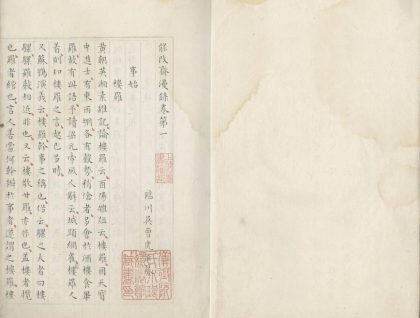 能改齋漫錄卷第一
臨川吳曾虎臣
事始
樓羅
黃朝英緗素雜記論樓羅云酉陽雜俎云樓羅因天寶
中進士有東西棚各有聲勢稍傖者多會於酒樓食畢
羅故有此語予讀梁元帝風人辭云城頭網雀樓羅人
著則知樓羅之言起已多時
又蘇鶚演義云樓羅幹事之稱也俗云騾之大者曰樓
騾騾羅聲相近非也又云婁敬甘羅亦非也蓋樓者攬
也羅者綰也言人善當何幹辦於事者遂謂之樓羅樓